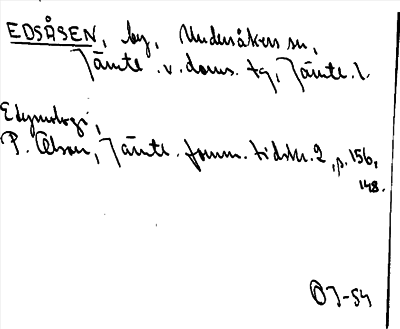 EDSÅSEN, by, Undersåkers sn,
Jämtl. v. doms. tg, Jämtl. l.
Etymologi,
P. Olsson, Jämtl. fornm. tidskr. 2, p. 156,
148.
OJ-54